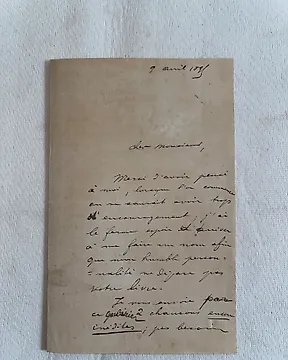 9 avril 189
monsieur,
Merci d'avoir pensé
à moi, lorsque l'on commence
on ne saurait avoir trop
d'encouragement, j'ai
le ferme espoir de arriver
à me faire un nom afin
que mon humble person-
-nalité ne dépare pas
votre livre.
Je vous envoie par
ce chansons encore
inédites, pas besoin